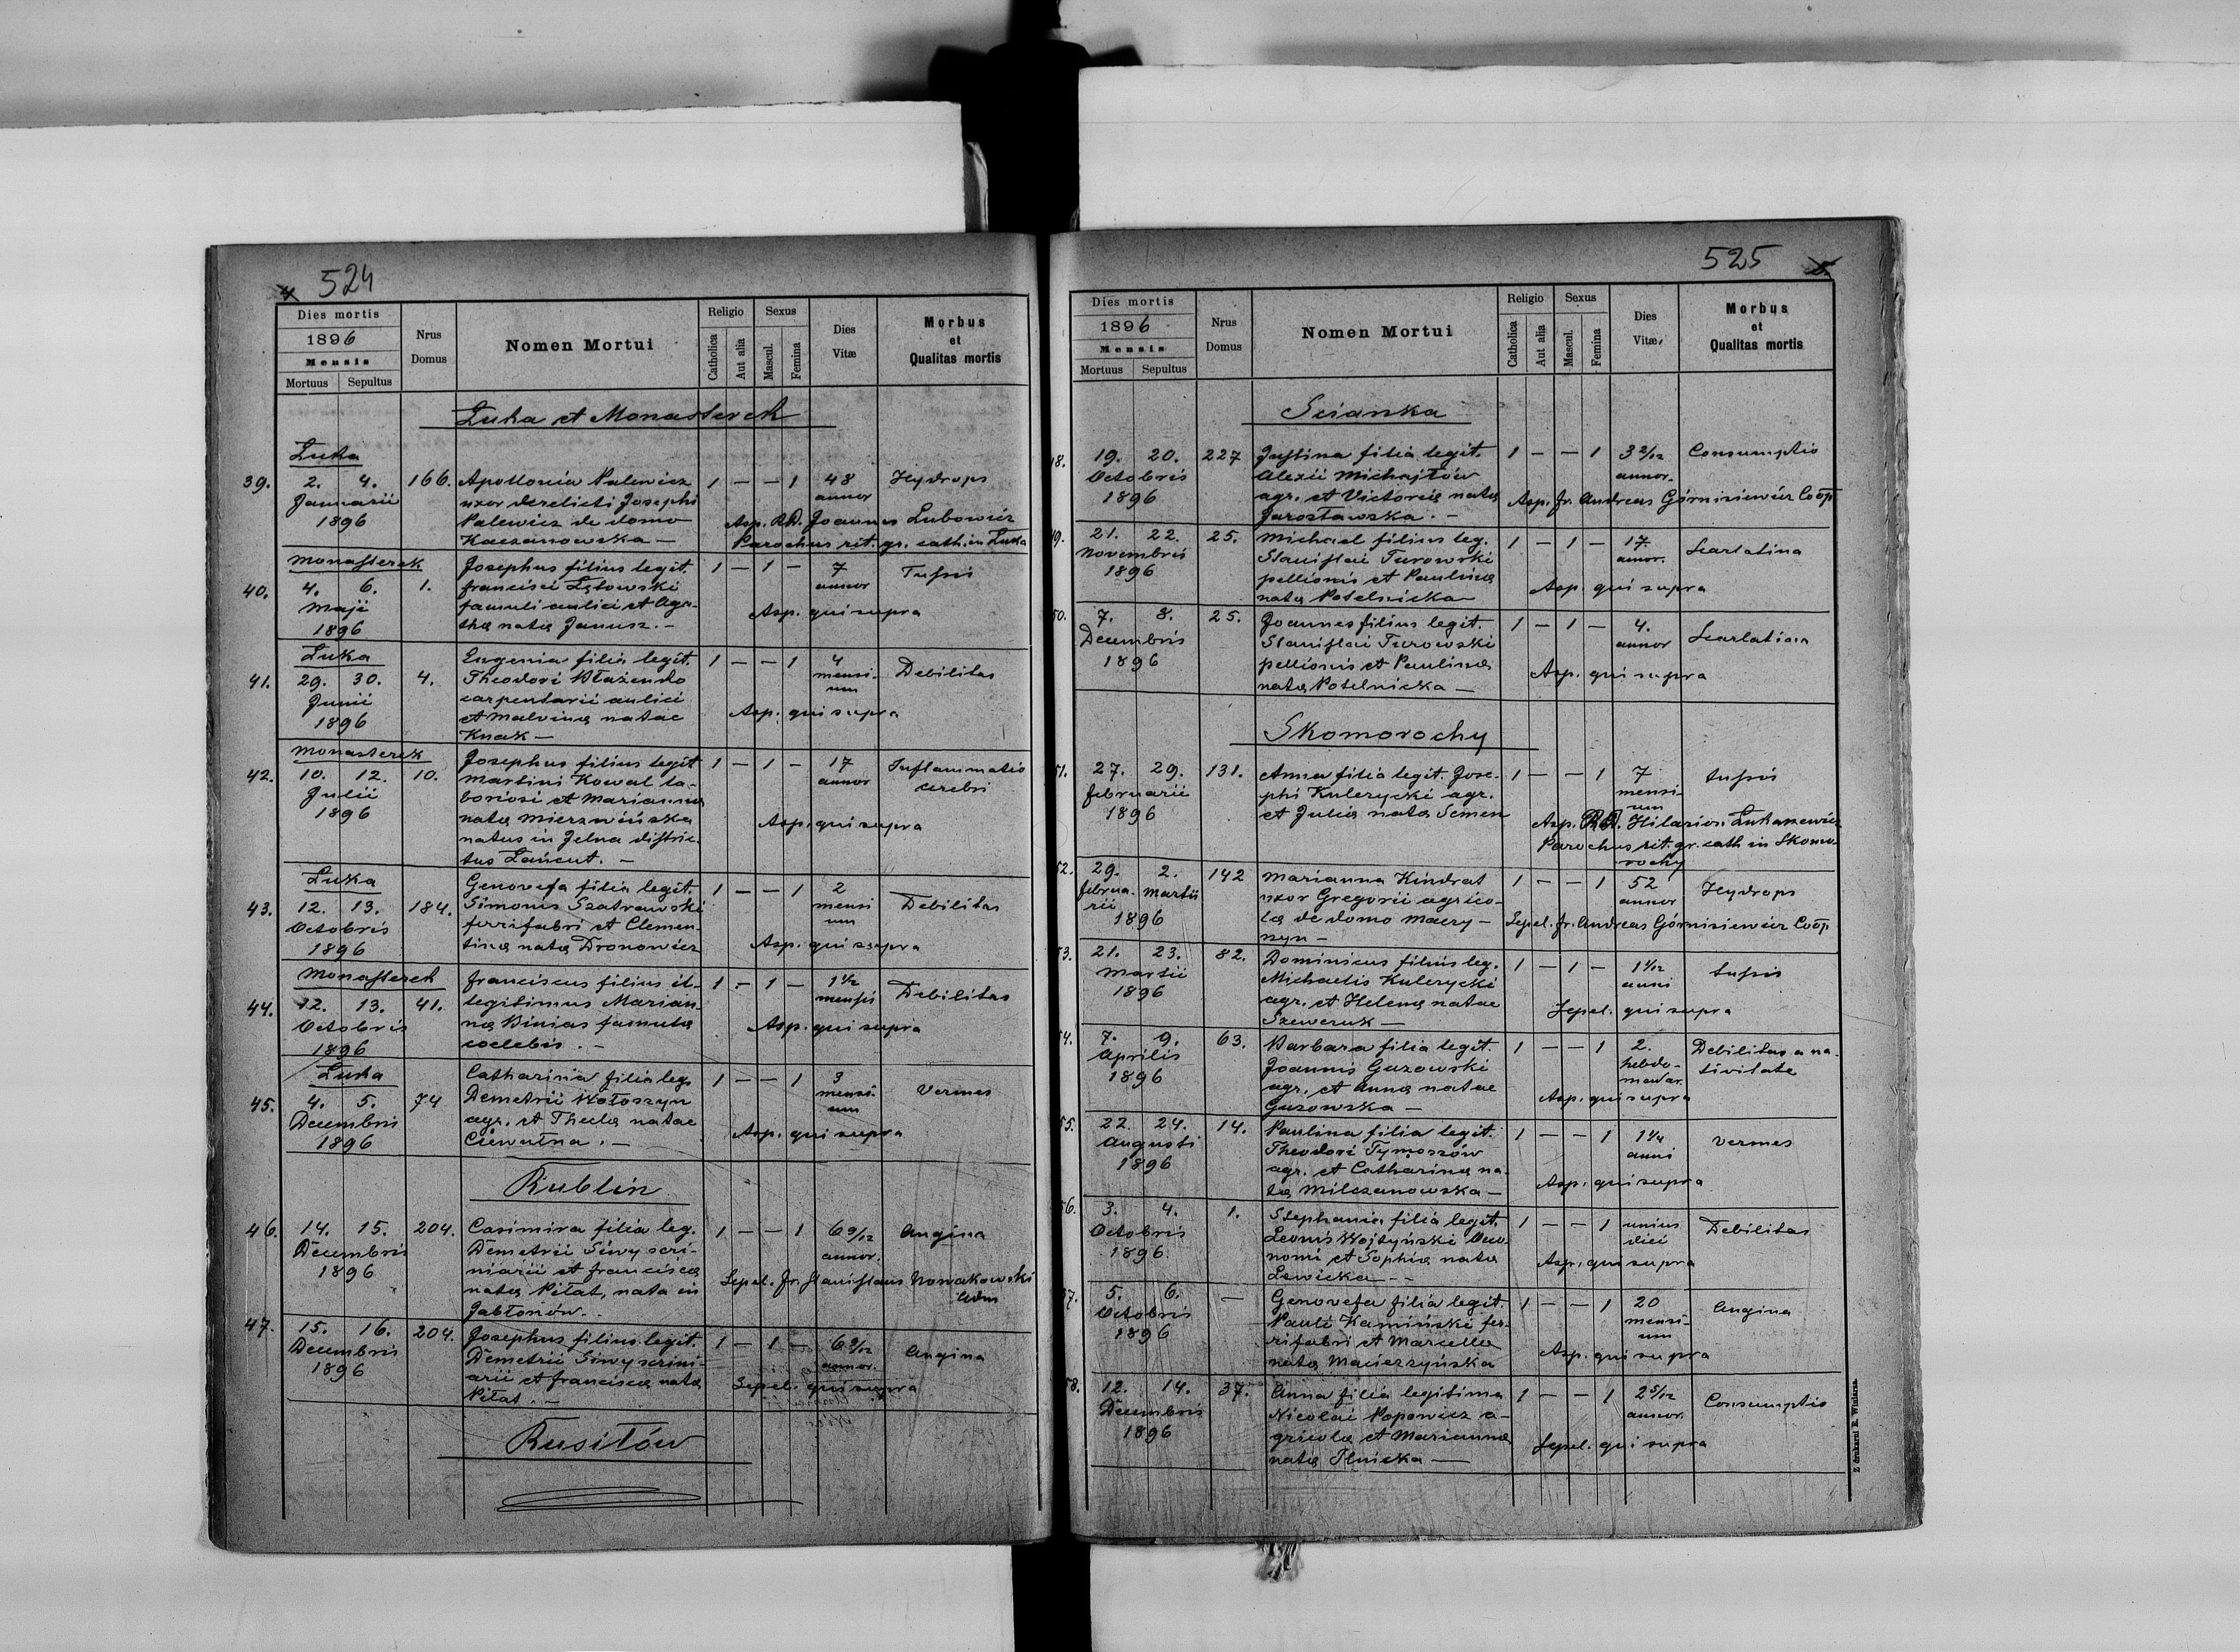 4 524
Dies mortis
1896
Mensis
Mortuus Sepultus
Nrus Domus
Nomen Mortui
Religio
Catholica Aut alia
Sexus
Mascul. Femina
Dies Vitæ
Morbus et Qualitas mortis
Łuka et Monasterek
Łuka
39. 2. 4. 166. Apollonia Palewicz 1 — — 1 48 Hydrops
Januarii uxor derelicti Josephi annor
1896 Palewicz de domo Asp. RD. Joannes Lubowicz
Kaczanowska — Parochus rit. gr. cath. in Łuka
Monasterek Josephus filius legit. 1 — 1 — 7 Tussis
40. 4. 6. 1. Francisci Łętowski annor
Maji famuli aulici et Aga- Asp. qui supra
1896 thæ natæ Janusz. —
Łuka Eugenia filia legit. 1 — — 1 4 Debilitas
41. 29. 30. 4. Theodori Błażenko mensi-
Junii carpentarii aulici um
1896 et Malvinæ natae Asp. qui supra
Knak —
Monasterek Josephus filius legit 1 — 1 — 17 Inflammatio
42. 10. 12. 10. Martini Kowal la- annor cerebri
Julii boriosi et Mariannæ
1896 natæ Mierzwińska Asp. qui supra
natus in Jelna distric-
tus Łańcut. —
Łuka Genovefa filia legit. 1 — — 1 2 Debilitas
43. 12. 13. 184. Simonis Szatrawski mensi
Octobris ferrifabri et Clemen- um
1896 tinæ natæ Dronowicz Asp. qui supra
Monasterek Franciscus filius il- 1 — 1 — 1 1/2 Debilitas
44. 12. 13. 41. legitimus Marian- mensis
Octobris næ Binias famulæ Asp. qui supra
1896 coelebis. —
Łuka Catharina filia leg. 1 — — 1 3 Vermes
45. 4. 5. 74 Demetrii Wołoszyn mensi-
Decembris agr. et Theclæ natae um
1896 Asp. qui supra
Rublin
46. 14. 15. 204. Casimira filia leg. 1 — — 1 6 9/12 Angina
Decembris Demetrii Siwy scri- annor.
1896 niarii et Franciscæ Sepel. fr. Stanislaus Nowakowski
natæ Piłat, nata in Adm
Jabłonów. —
47. 15. 16. 204. Josephus filius legit. 1 — 1 — 6 9/12 Angina
Decembris Demetrii Siwy scrini- annor.
1896 arii et Franciscæ natæ Sepel. qui supra
Piłat. —
Rusiłów
525 5.
Dies mortis
1896
Mensis
Mortuus Sepultus
Nrus Domus
Nomen Mortui
Religio
Catholica Aut alia
Sexus
Mascul. Femina
Dies Vitæ
Morbus et Qualitas mortis
Scianka
48. 19. 20. 227 Justina filia legit. 1 — — 1 3 2/12 Consumptio
Octobris Alexii Michajłów annor.
1896 agr. et Victoriæ natæ Asp. fr. Andreas Górnisiewicz Coop
Jarosławska. —
49. 21. 22. 25. Michael filius leg. 1 — 1 — 17. Scarlatina
Novembris Stanislai Turowski annor.
1896 pellionis et Paulinæ Asp. qui supra
natæ Potelnicka
50. 7. 8. 25. Joannes filius legit. 1 — 1 — 4. Scarlatina
Decembris Stanislai Turowski annor
1896 pellionis et Paulinæ Asp. qui supra
natæ Potelnicka —
Skomorochy
51. 27. 29. 131. Anna filia legit. Jose- 1 — — 1 7 tussis
Februarii phi Kulczycki agr. mensi-
1896 et Juliæ natæ Semen um
Asp. RD. Hilarion Łukasiewicz
Parochus rit. gr. cath in Skomo-
rochy
52. 29. 2. 142 Marianna Kindrat 1 — — 1 52 Hydrops
Februa- Martii uxor Gregorii agrico- annor
rii
1896 læ de domo Mary- Sepel. fr. Andreas Górnisiewicz Coop
szyn —
53. 21. 23. 82. Dominicus filius leg. 1 — 1 — 1 1/12 tussis
Martii Michaelis Kulczycki anni
1896 agr. et Helenæ natae Sepel. qui supra
Szewczuk —
54. 7. 9. 63. Barbara filia legit. 1 — — 1 2. Debilitas a na-
Aprilis Joannis Guzowski hebdo- tivitate
1896 agr. et Annæ natae madar.
Guzowska — Asp. qui supra
55. 22. 24. 14. Paulina filia legit. 1 — — 1 1 1/4 vermes
Augusti Theodori Tymoszów anni
1896 agr. et Catharinæ na- Asp. qui supra
tæ Milczanowska —
56. 3. 4. 1. Stephania filia legit. 1 — — 1 unius Debilitas
Octobris Leonis Wojtyński Oeco- diei
1896 nomi et Sophiæ natæ Asp. qui supra
Lewicka —
57. 5. 6. — Genovefa filia legit. 1 — — 1 20 Angina
Octobris Pauli Kamiński fer- mensi-
1896 rifabri et Marcellæ um
natæ Macierzyńska Asp. qui supra
58. 12. 14. 37. Anna filia legitima 1 — — 1 2 5/12 Consumptio
Decembris Nicolai Popowicz a- annor.
1896 gricolæ et Mariannæ Sepel. qui supra
natæ Ilnicka —
Z drukarni E. Winiarza.